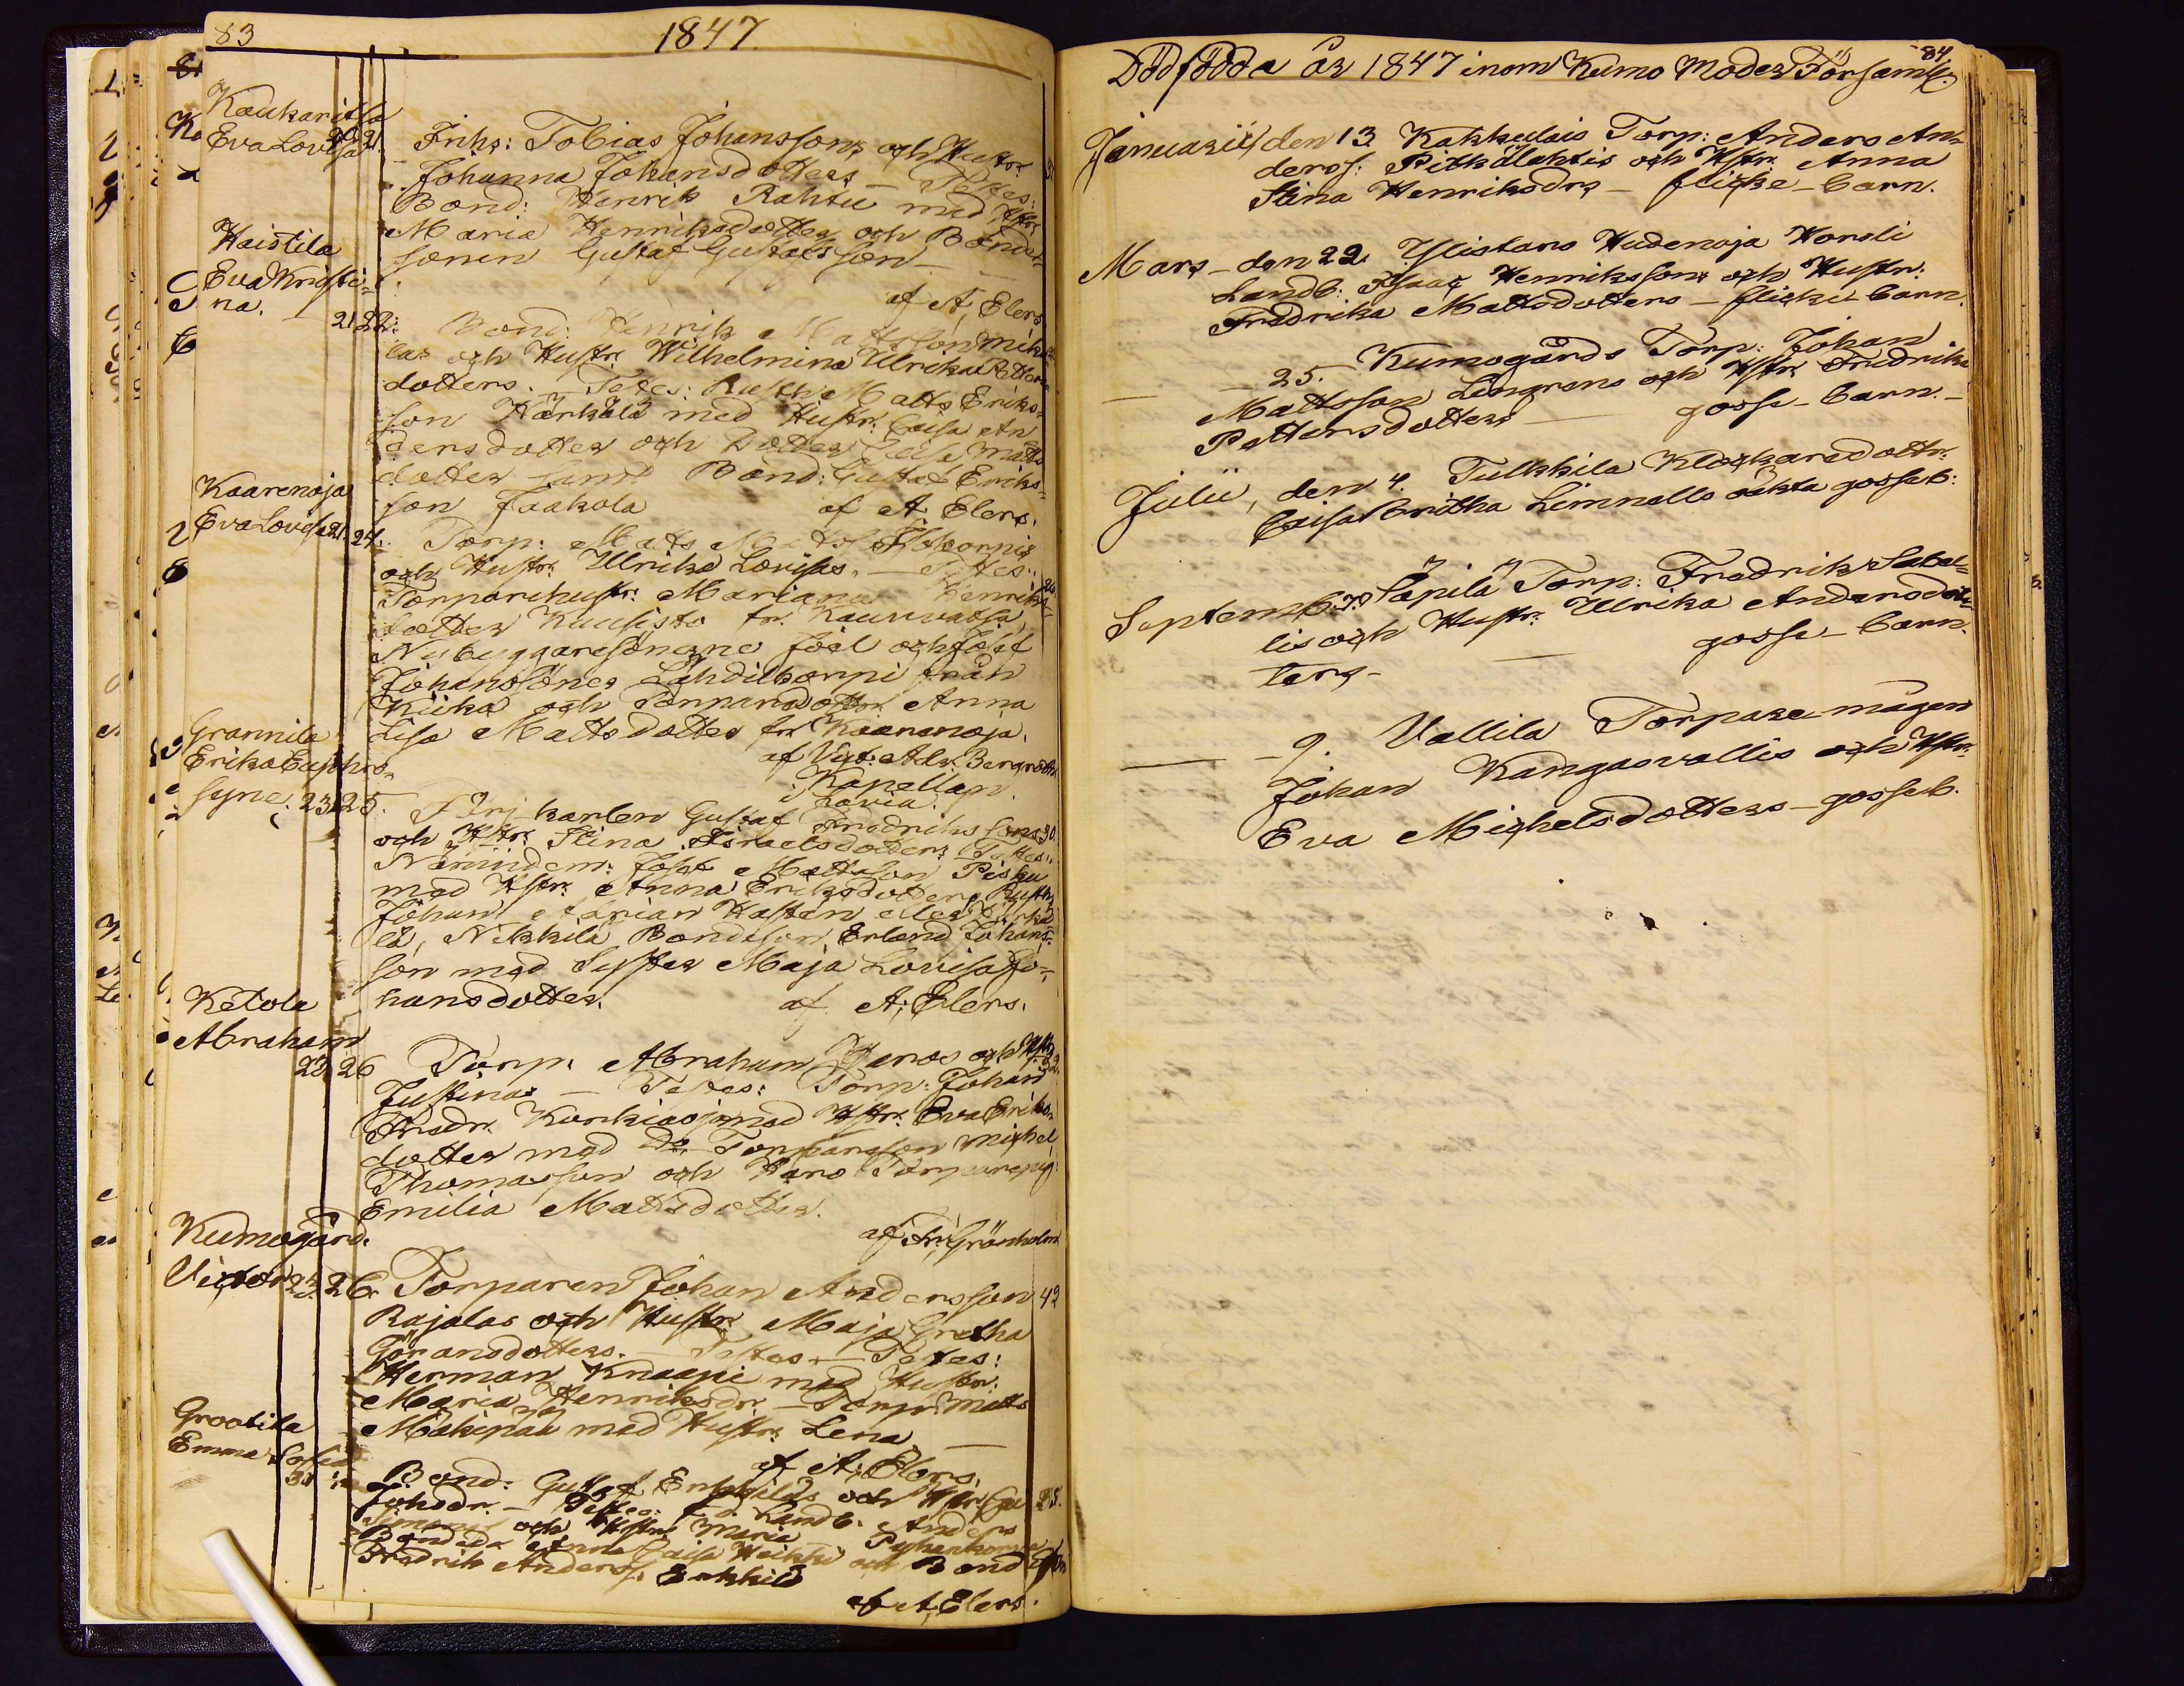 83
1847
Kaukaritsa
Eva Lovisa 20. 21.
Inhs: Tobias Johanssons och Hustr.
Johanna Johansdotters — Testes:
Bond: Henrik Rahtu med Hstr.
Maria Henriksdotter och Bonde-
sonen Gustaf Gustafsson —
af A, Elers
Haistila
Eva Kristi-
na. 21. 22.
Bond: Henrik Mattsson Mik-
las och Hustr. Wilhelmina Ulrika Petters-
dotters. Testes: Rusth. Matts Eriks-
son Härkälä med Hustr. Caisa An-
dersdotter och Dotter Caisa Matts
dotter samt Bond: Gustaf Eriks-
son Jaakola af A. Elers.
Kaarenoja
Eva Lovisa 21. 24.
Torp: Matts Matts
och Hustr. Ulrika Lovisas. — Testes:
Torparehustr: Mariana Henriks-
dotter Kuusisto fr. Kauvatsa,
Nybyggaresönerne Joel och Josef
Johanssöner Lähdekorpi från
Kiika och Torparedottr Anna
Lisa Mattsdotter fr. Kaarenoja.
af Vic: Adv. Bergroth
Kapellan
i Lavia.
Grannila
Erika Euphro-
syne. 23. 25.
karlen Gustaf Fredrikssons 30.
och Hstr. Stina Israelsdotters Testes:
Nämndem: Josef Mattsson Pisku
med Hstr: Anna Eriksdotter, Rusth.
Johan Adrian Hasten eller Härkä
lä, Nikkilä Bondeson Erland Johans-
son med Syster Maja Lovisa Jo-
hansdotter. af A; Elers.
Ketola
Abraham
23. 26
Torp. Abraham och Hstr. 32.
Justinas — Testes: Torp: Johan
Fredr. Korkiaoja med Hstr. Eva Eriks-
dotter med Do Torpareson Michel
Thomasson och Torparepig:
Emilia Mattsdotter.
af Fr; Grönholm
Kumogård.
Victor 23. 26.
Torparen Johan Andersson 42
Rajalas och Hustr. Maja Gretha
Göransdotters. — Testes — Testes:
Herman Knaapi med Hustr:
Maria Henriksdr. — Torp: Matts
Mäkipää med Hustr. Lena —
af A; Elers.
Grootila
Emma Sofia
Bond: Gustaf Erkkiläs och Hstr. 28.
Johsdr. — Testes: Landb. Anders
och Hstru Maria
Bondeda Anna Caisa Heikki och Bond
Fredrik Anderss. Erkkilä
af A, Elers.
84
Dödfödda år 1847 inom Kumo Moder Församl.
Januarii den 13. Kakkulais Torp: Anders An-
derss: Pitkälehtis och Hstr. Anna
Stina Henriksdrs — flicke-barn.
Mars — den 22. Ylistaro Hudenoja Horsli
Landb: Isaac Henrikssons och Hustr:
Fredrika Mattsdotters — flicke-barn.
— 25. Kumogårds Torp: Johan
Mattsson Lingrens och Hstr. Fredrika
Pettersdotters — gosse-barn. —
Julii, den 4. Tulkkila Klockaredottr.
Caisa Critha Limnells oäkta gosseb:
Septemb: 3. Säpilä Torp: Fredrik Sabel-
lis och Hustr: Ulrika Andersdot-
ters — gosse-barn.
— 9. Vallila Torpare-mågen
Johan Kangasvallis och Hstr.
Eva Michelsdotters — gosseb.